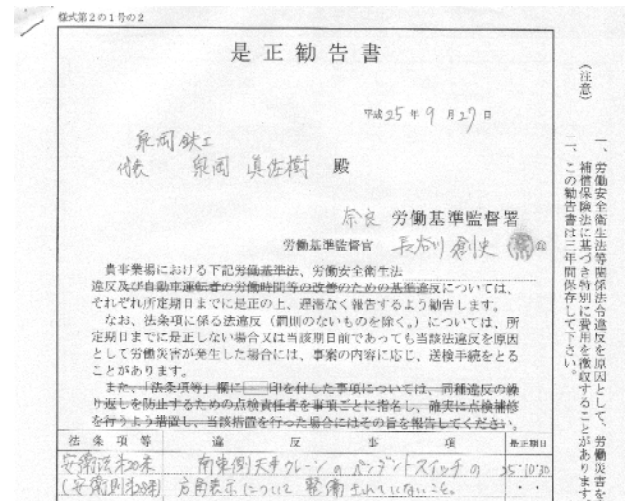 様式第2の1号の2
是正勧告書
平成25年9月27日
泉岡鉄工
代表 泉岡 眞佐樹 殿
奈良 労働基準監督署
労働基準監督官 長谷川 創史 ㊞
貴事業場における下記労働基準法、労働安全衛生法
違反及び自動車運転者の労働時間等の改善のための基準違反については、
それぞれ所定期日までに是正の上、遅滞なく報告するよう勧告します。
なお、法条項に係る法違反(罰則のないものを除く。)については、所
定期日までに是正しない場合又は当該期日前であっても当該法違反を原因
として労働災害が発生した場合には、事案の内容に応じ、送検手続をとる
ことがあります。
また、「法条項等」欄に□印を付した事項については、同種違反の繰
り返しを防止するための点検責任者を事項ごとに指名し、確実に点検補修
を行うよう措置し、当該措置を行った場合にはその旨を報告してください。
法条項等 違反事項 是正期日
安衛法第20条 南東側天井クレーンのペンダントスイッチの 25・10・30
(安衛則第28条) 方向表示について整備されていないこと。
(注意)
一、労働安全衛生法等関係法令違反を原因として、労働災害を
補償保険法に基づき特別に費用を徴収することがあります。
一、この勧告書は三年間保存して下さい。